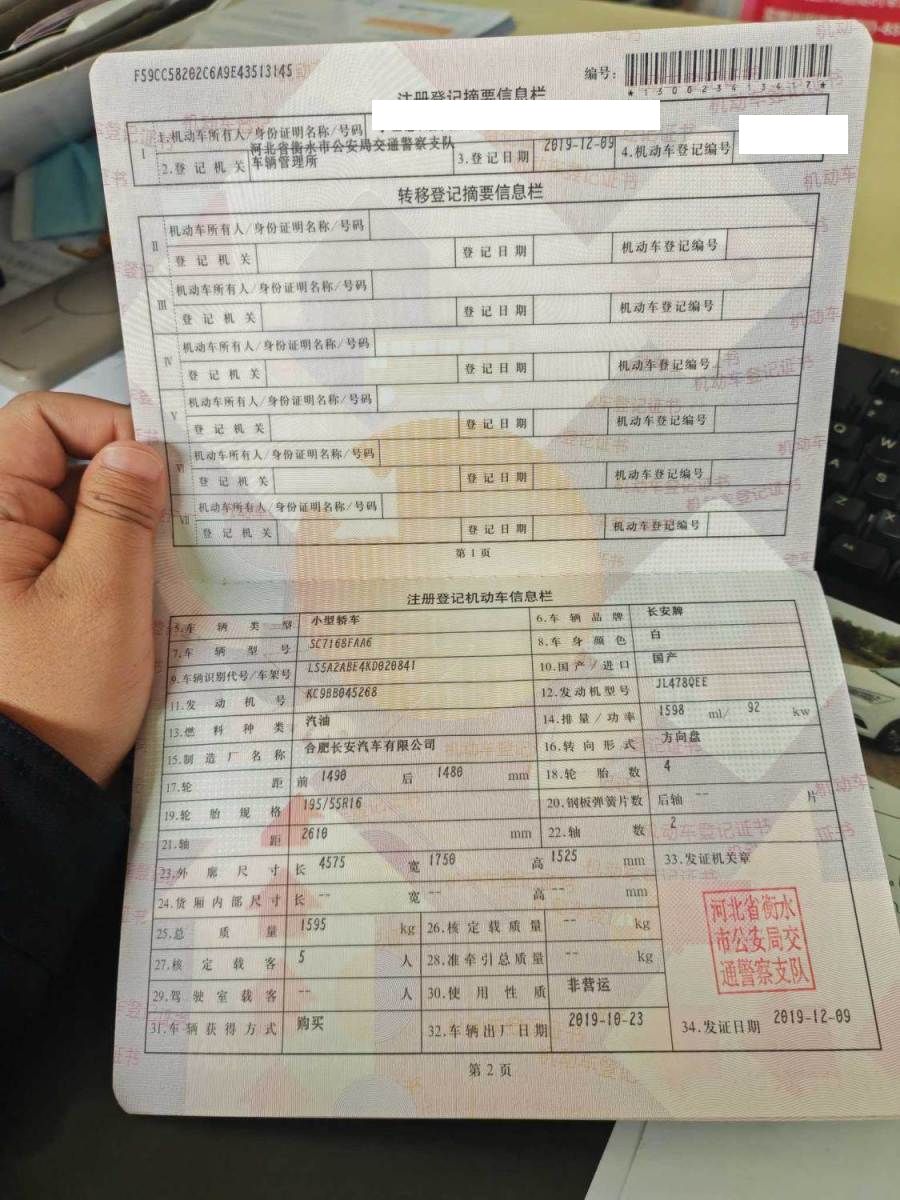 F59CC58202C6A9E43513145
编号:
*130023413417*
注册登记摘要信息栏
I 1.机动车所有人/身份证明名称/号码
2.登记机关 河北省衡水市公安局交通警察支队车辆管理所 3.登记日期 2019-12-09 4.机动车登记编号
转移登记摘要信息栏
II 机动车所有人/身份证明名称/号码
登记机关 登记日期 机动车登记编号
III 机动车所有人/身份证明名称/号码
登记机关 登记日期 机动车登记编号
IV 机动车所有人/身份证明名称/号码
登记机关 登记日期 机动车登记编号
V 机动车所有人/身份证明名称/号码
登记机关 登记日期 机动车登记编号
VI 机动车所有人/身份证明名称/号码
登记机关 登记日期 机动车登记编号
VII 机动车所有人/身份证明名称/号码
登记机关 登记日期 机动车登记编号
第1页
注册登记机动车信息栏
5.车辆类型 小型轿车 6.车辆品牌 长安牌
7.车辆型号 SC7168FAA6 8.车身颜色 白
9.车辆识别代号/车架号 LS5A2ABE4KD020841 10.国产/进口 国产
11.发动机号 KC9BB045268 12.发动机型号 JL478QEE
13.燃料种类 汽油 14.排量/功率 1598 ml/ 92 kw
15.制造厂名称 合肥长安汽车有限公司 16.转向形式 方向盘
17.轮距 前 1490 后 1480 mm 18.轮胎数 4
19.轮胎规格 195/55R16 20.钢板弹簧片数 后轴 -- 片
21.轴距 2610 mm 22.轴数 2
23.外廓尺寸 长 4575 宽 1750 高 1525 mm 33.发证机关章
24.货厢内部尺寸 长 -- 宽 -- 高 -- mm
25.总质量 1595 kg 26.核定载质量 -- kg
27.核定载客 5 人 28.准牵引总质量 -- kg
29.驾驶室载客 -- 人 30.使用性质 非营运
31.车辆获得方式 购买 32.车辆出厂日期 2019-10-23 34.发证日期 2019-12-09
河北省衡水
市公安局交
通警察支队
第2页